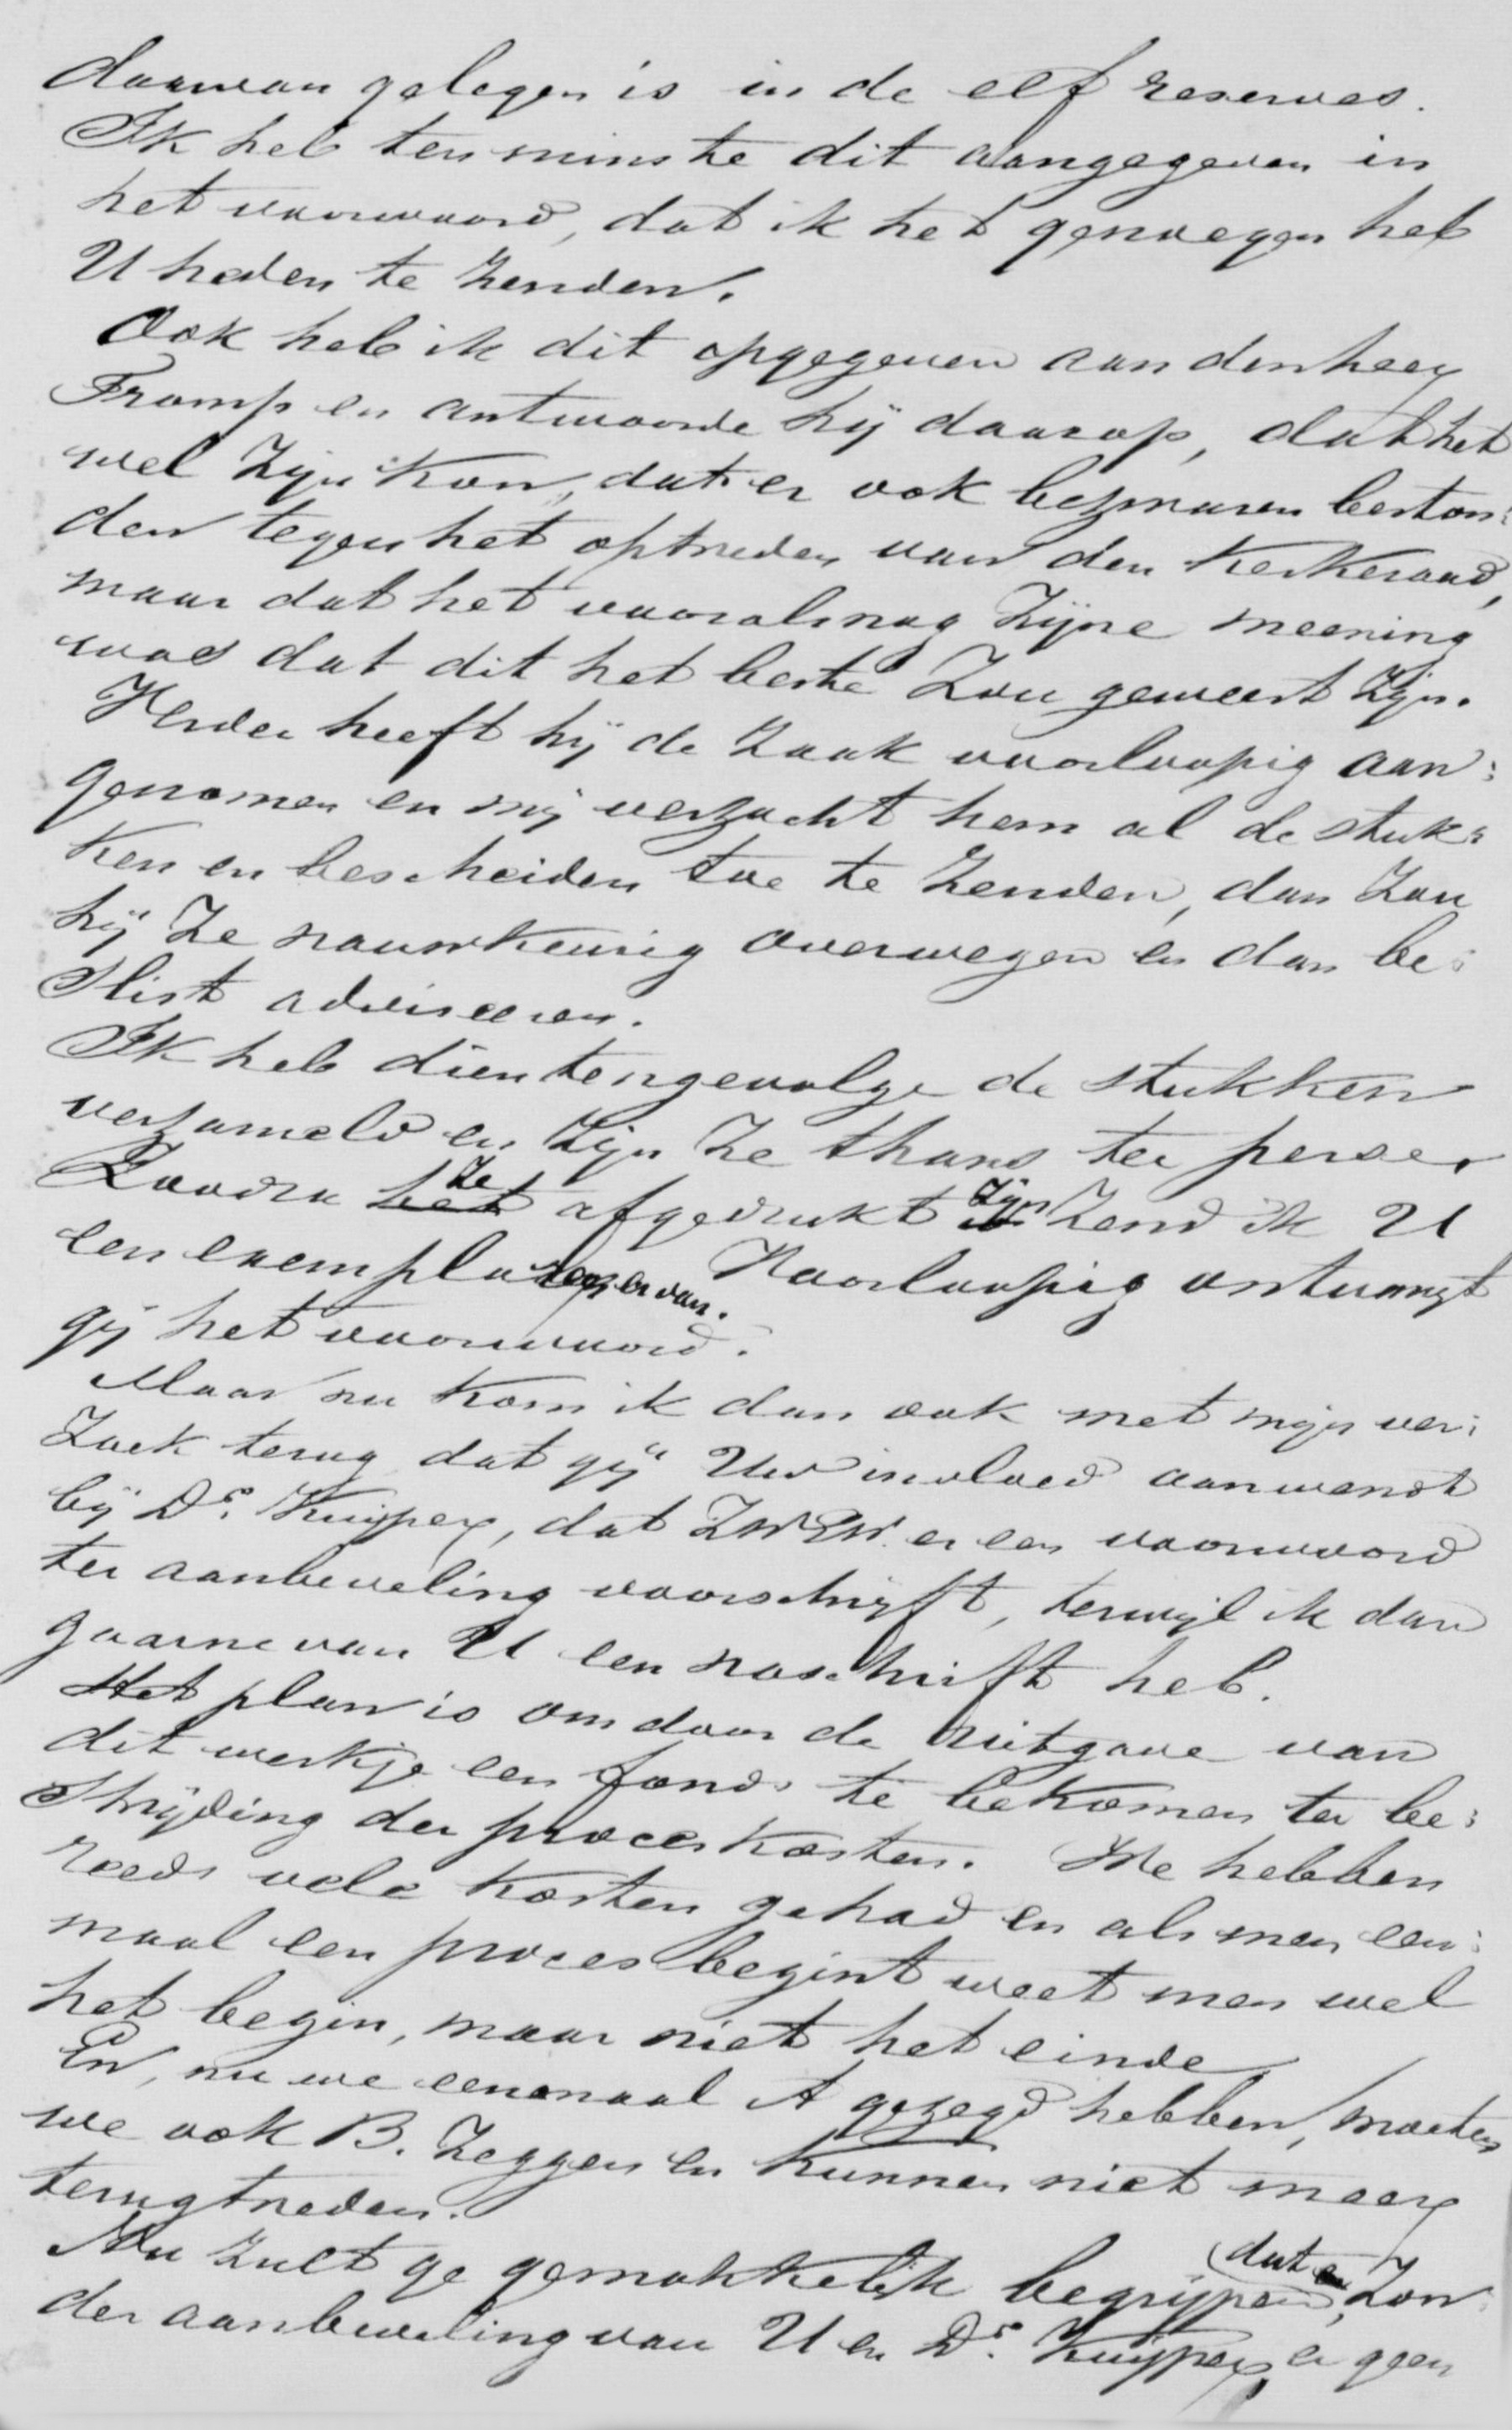 daarvan gelegen is in de elf reserves.
Ik heb ten minste dit aangegeven in
het voorwoord, dat ik het genoegen heb
U heden te zenden.
Ook heb ik dit opgegeven aan den heer
Tromp en antwoorde hij daarop, dat het
wel zijn kon, dat er ook bezwaren beston:
den tegen het optreden van den Kerkeraad,
maar dat het vooralsnog zijne meening
was dat dit het beste zou geweest zijn.
Verder heeft hij de zaak voorloopig aan:
genomen en mij verzocht hem al de stuk:
ken en bescheiden toe te zenden, dan zou
hij ze nauwkeurig overwegen en dan be:
slist adviseeren.
Ik heb dientengevolge de stukken
verzameld en zijn ze thans ter perse.
Zoodra het ze afgedrukt is zijn zend ik U
een exemplaar er van. Voorloopig ontvangt
gij het voorwoord.
Maar nu kom ik dan ook met mijn ver:
zoek terug dat gij Uw invloed aanwendt
bij Dr. Kuijper, dat ZWEW. er een voorwoord
ter aanbeveling voorschrijft, terwijl ik dan
gaarne van U een naschrift heb.
Het plan is om door de uitgave van
dit werkje een fonds te bekomen ter be:
strijding der proceskosten. We hebben
reeds vele kosten gehad en als men een:
maal een proces begint weet men wel
het begin, maar niet het einde.
En, nu we eenmaal A gezegd hebben, moeten
we ook B. zeggen en kunnen niet meer
terugtreden.
Nu zult ge gemakkelijk begrijpen, dat zon:
der aanbeveling van U en Dr. Kuijper, er geen